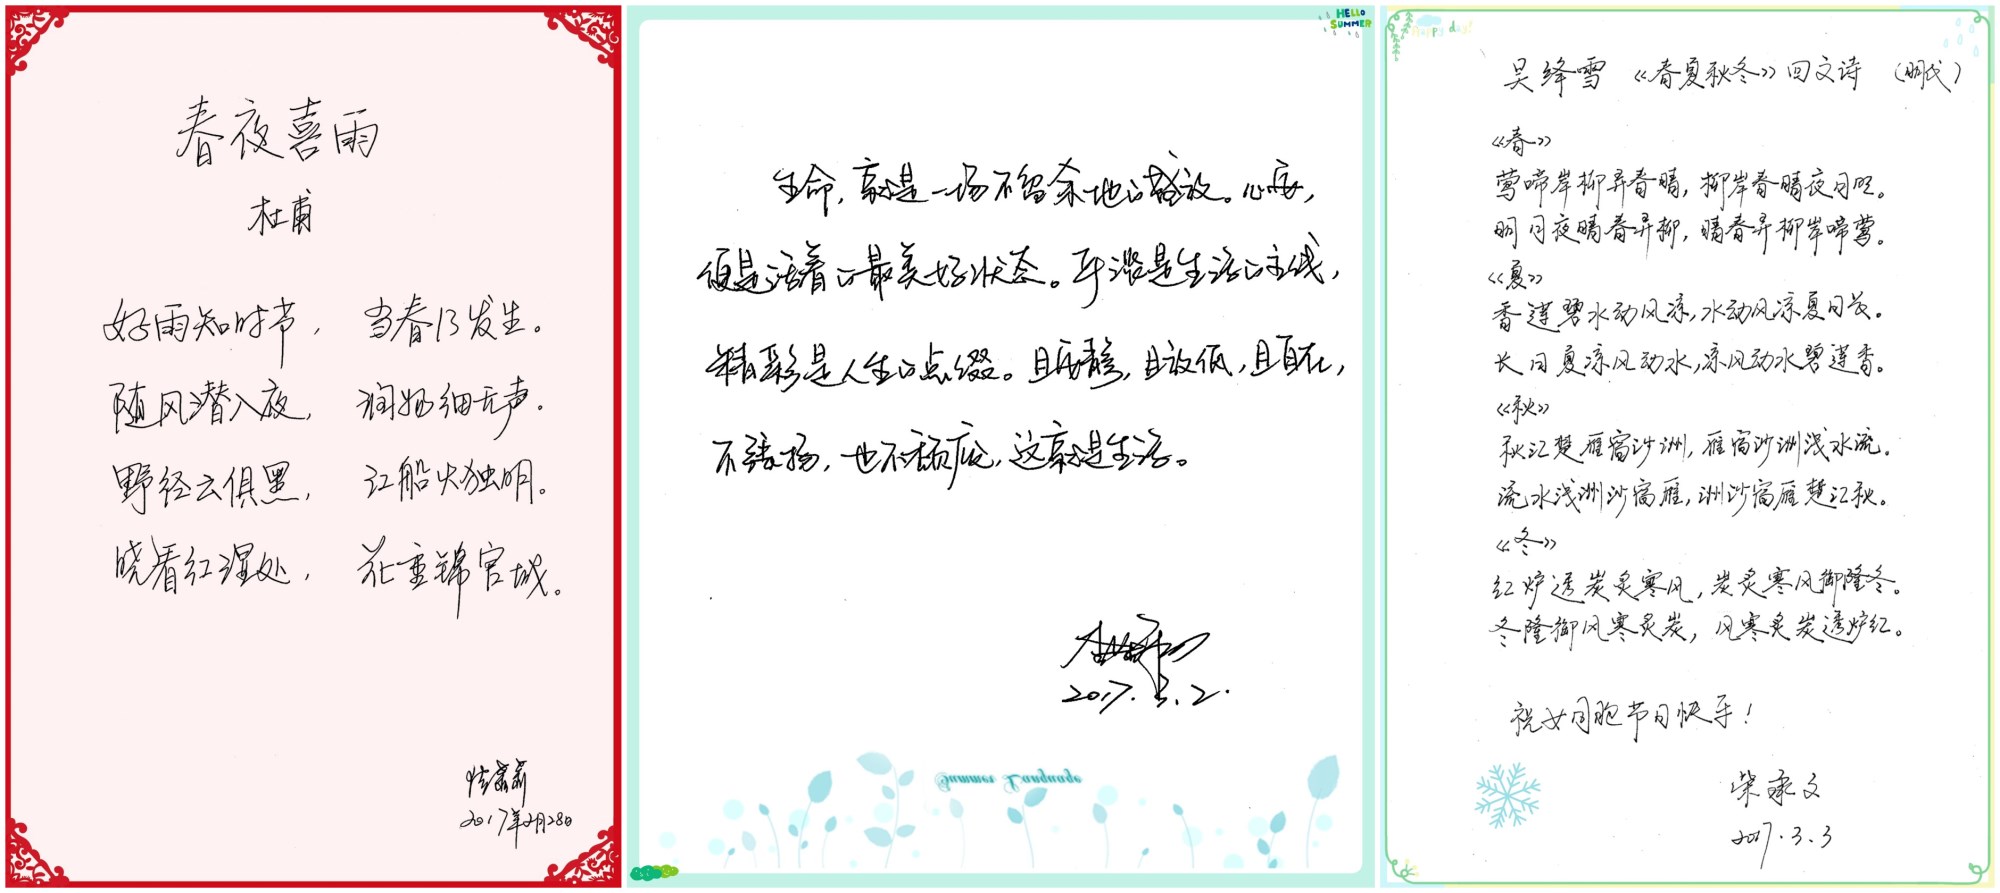 春夜喜雨
杜甫
好雨知时节， 当春乃发生。
随风潜入夜， 润物细无声。
野径云俱黑， 江船火独明。
晓看红湿处， 花重锦官城。
2017年2月28日
HELLO
SUMMER
生命，就是一场不留余地的盛放。心安，
便是活着的最美好状态。平淡是生活的主线，
精彩是人生的点缀。且安静，且放低，且自在，
不张扬，也不颓废，这就是生活。
2017.3.2.
Summer Language
Happy day!
吴绛雪 《春夏秋冬》回文诗 （明代）
《春》
莺啼岸柳弄春晴，柳岸春晴夜月明。
明月夜晴春弄柳，晴春弄柳岸啼莺。
《夏》
香莲碧水动风凉，水动风凉夏日长。
长日夏凉风动水，凉风动水碧莲香。
《秋》
秋江楚雁宿沙洲，雁宿沙洲浅水流。
流水浅洲沙宿雁，洲沙宿雁楚江秋。
《冬》
红炉透炭炙寒风，炭炙寒风御隆冬。
冬隆御风寒炙炭，风寒炙炭透炉红。
祝女同胞节日快乐！
柴承文
2017.3.3